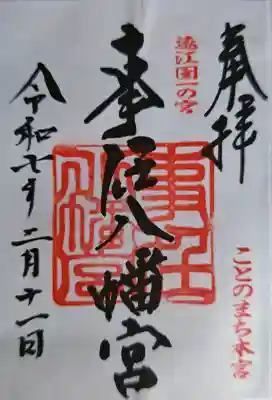 奉拝
ことのまち本宮
遠江国一の宮
事任八幡宮
事任八幡宮
令和七年二月十一日